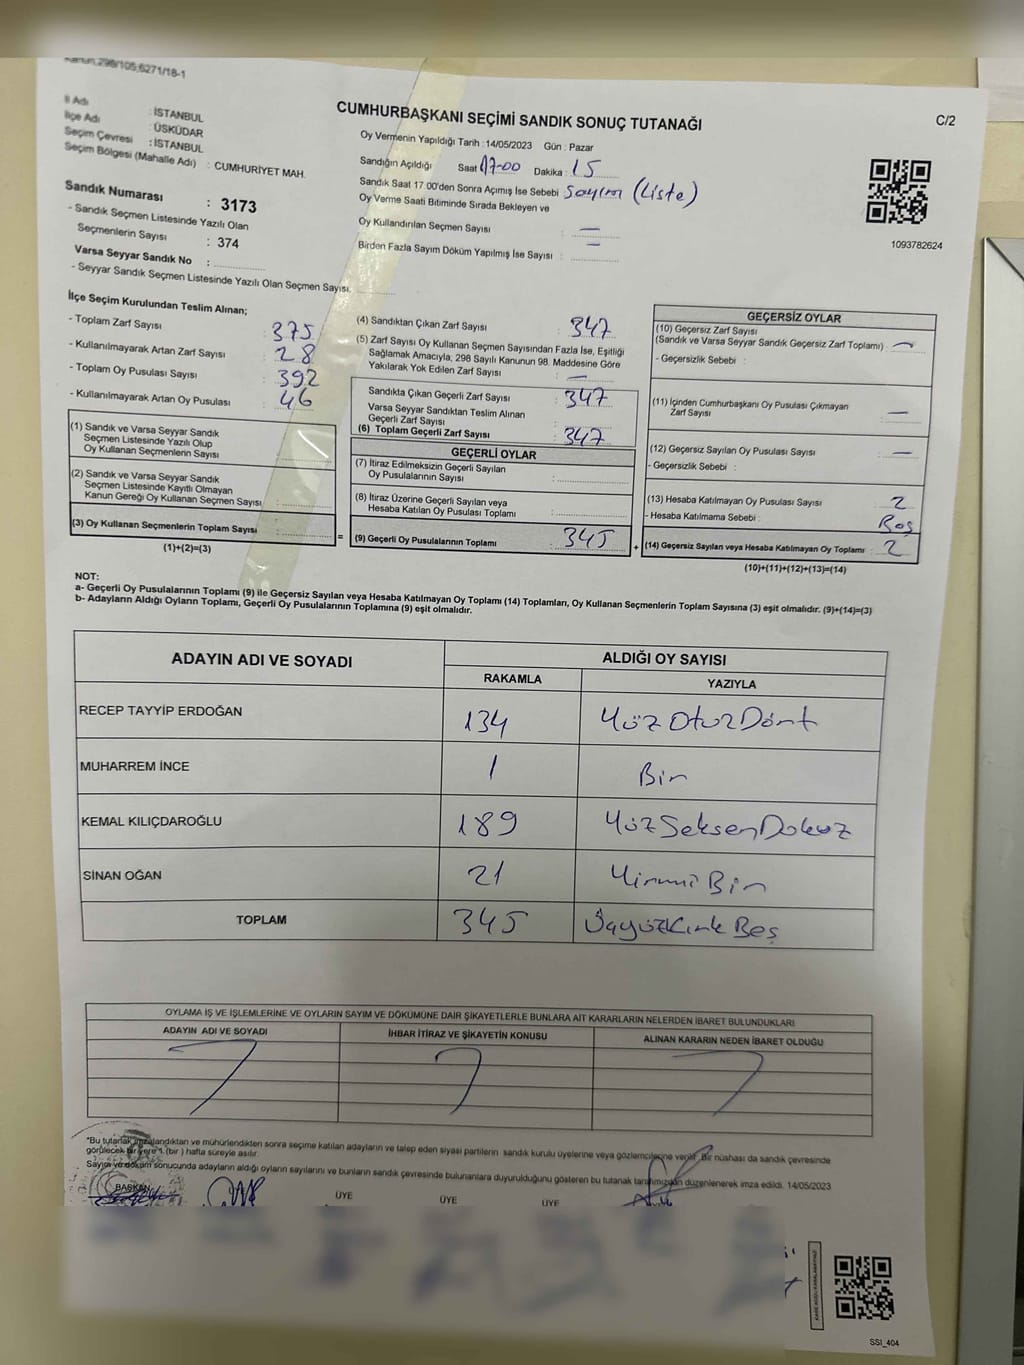 Kanun;298/105;6271/18-1
CUMHURBAŞKANI SEÇİMİ SANDIK SONUÇ TUTANAĞI
C/2
İl Adı : İSTANBUL
İlçe Adı : ÜSKÜDAR
Seçim Çevresi : İSTANBUL
Seçim Bölgesi (Mahalle Adı) : CUMHURİYET MAH.
Sandık Numarası : 3173
- Sandık Seçmen Listesinde Yazılı Olan
Seçmenlerin Sayısı : 374
Varsa Seyyar Sandık No :
- Seyyar Sandık Seçmen Listesinde Yazılı Olan Seçmen Sayısı
Oy Vermenin Yapıldığı Tarih :14/05/2023 Gün : Pazar
Sandığın Açıldığı Saat 17-00 Dakika : 15
Sandık Saat 17.00'den Sonra Açımış İse Sebebi Sayım (Liste)
Oy Verme Saati Bitiminde Sırada Bekleyen ve
Oy Kullandırılan Seçmen Sayısı : —
Birden Fazla Sayım Döküm Yapılmış İse Sayısı : —
1093782624
İlçe Seçim Kurulundan Teslim Alınan;
- Toplam Zarf Sayısı : 375
- Kullanılmayarak Artan Zarf Sayısı : 28
- Toplam Oy Pusulası Sayısı : 392
- Kullanılmayarak Artan Oy Pusulası : 46
(1) Sandık ve Varsa Seyyar Sandık
Seçmen Listesinde Yazılı Olup
Oy Kullanan Seçmenlerin Sayısı
(2) Sandık ve Varsa Seyyar Sandık
Seçmen Listesinde Kayıtlı Olmayan
Kanun Gereği Oy Kullanan Seçmen Sayısı :
(3) Oy Kullanan Seçmenlerin Toplam Sayısı :
(1)+(2)=(3)
=
(4) Sandıktan Çıkan Zarf Sayısı : 347
(5) Zarf Sayısı Oy Kullanan Seçmen Sayısından Fazla İse, Eşitliği
Sağlamak Amacıyla, 298 Sayılı Kanunun 98. Maddesine Göre
Yakılarak Yok Edilen Zarf Sayısı : —
Sandıkta Çıkan Geçerli Zarf Sayısı : 347
Varsa Seyyar Sandıktan Teslim Alınan
Geçerli Zarf Sayısı :
(6) Toplam Geçerli Zarf Sayısı : 347
GEÇERLİ OYLAR
(7) İtiraz Edilmeksizin Geçerli Sayılan
Oy Pusulalarının Sayısı :
(8) İtiraz Üzerine Geçerli Sayılan veya
Hesaba Katılan Oy Pusulası Toplamı :
(9) Geçerli Oy Pusulalarının Toplamı : 345
+
GEÇERSİZ OYLAR
(10) Geçersiz Zarf Sayısı
(Sandık ve Varsa Seyyar Sandık Geçersiz Zarf Toplamı) : —
- Geçersizlik Sebebi :
(11) İçinden Cumhurbaşkanı Oy Pusulası Çıkmayan
Zarf Sayısı : —
(12) Geçersiz Sayılan Oy Pusulası Sayısı : —
- Geçersizlik Sebebi :
(13) Hesaba Katılmayan Oy Pusulası Sayısı : 2
- Hesaba Katılmama Sebebi : Boş
(14) Geçersiz Sayılan veya Hesaba Katılmayan Oy Toplamı : 2
(10)+(11)+(12)+(13)=(14)
NOT:
a- Geçerli Oy Pusulalarının Toplamı (9) ile Geçersiz Sayılan veya Hesaba Katılmayan Oy Toplamı (14) Toplamları, Oy Kullanan Seçmenlerin Toplam Sayısına (3) eşit olmalıdır. (9)+(14)=(3)
b- Adayların Aldığı Oyların Toplamı, Geçerli Oy Pusulalarının Toplamına (9) eşit olmalıdır.
ADAYIN ADI VE SOYADI
ALDIĞI OY SAYISI
RAKAMLA YAZIYLA
RECEP TAYYİP ERDOĞAN 134 YüzOtuzDört
MUHARREM İNCE 1 Bir
KEMAL KILIÇDAROĞLU 189 YüzSeksenDokuz
SİNAN OĞAN 21 Yirmi Bir
TOPLAM 345 ÜçyüzKırk Beş
OYLAMA İŞ VE İŞLEMLERİNE VE OYLARIN SAYIM VE DÖKÜMÜNE DAİR ŞİKAYETLERLE BUNLARA AİT KARARLARIN NELERDEN İBARET BULUNDUKLARI
ADAYIN ADI VE SOYADI İHBAR İTİRAZ VE ŞİKAYETİN KONUSU ALINAN KARARIN NEDEN İBARET OLDUĞU
*Bu tutanak imzalandıktan ve mühürlendikten sonra seçime katılan adayların ve talep eden siyasi partilerin sandık kurulu üyelerine veya gözlemcilerine verilir. Bir nüshası da sandık çevresinde
görülecek bir yere 1 (bir ) hafta süreyle asılır.
Sayım ve döküm sonucunda adayların aldığı oyların sayılarını ve bunların sandık çevresinde bulunanlara duyurulduğunu gösteren bu tutanak tarafımızdan düzenlenerek imza edildi. 14/05/2023
BAŞKAN ÜYE ÜYE ÜYE
SSI_404